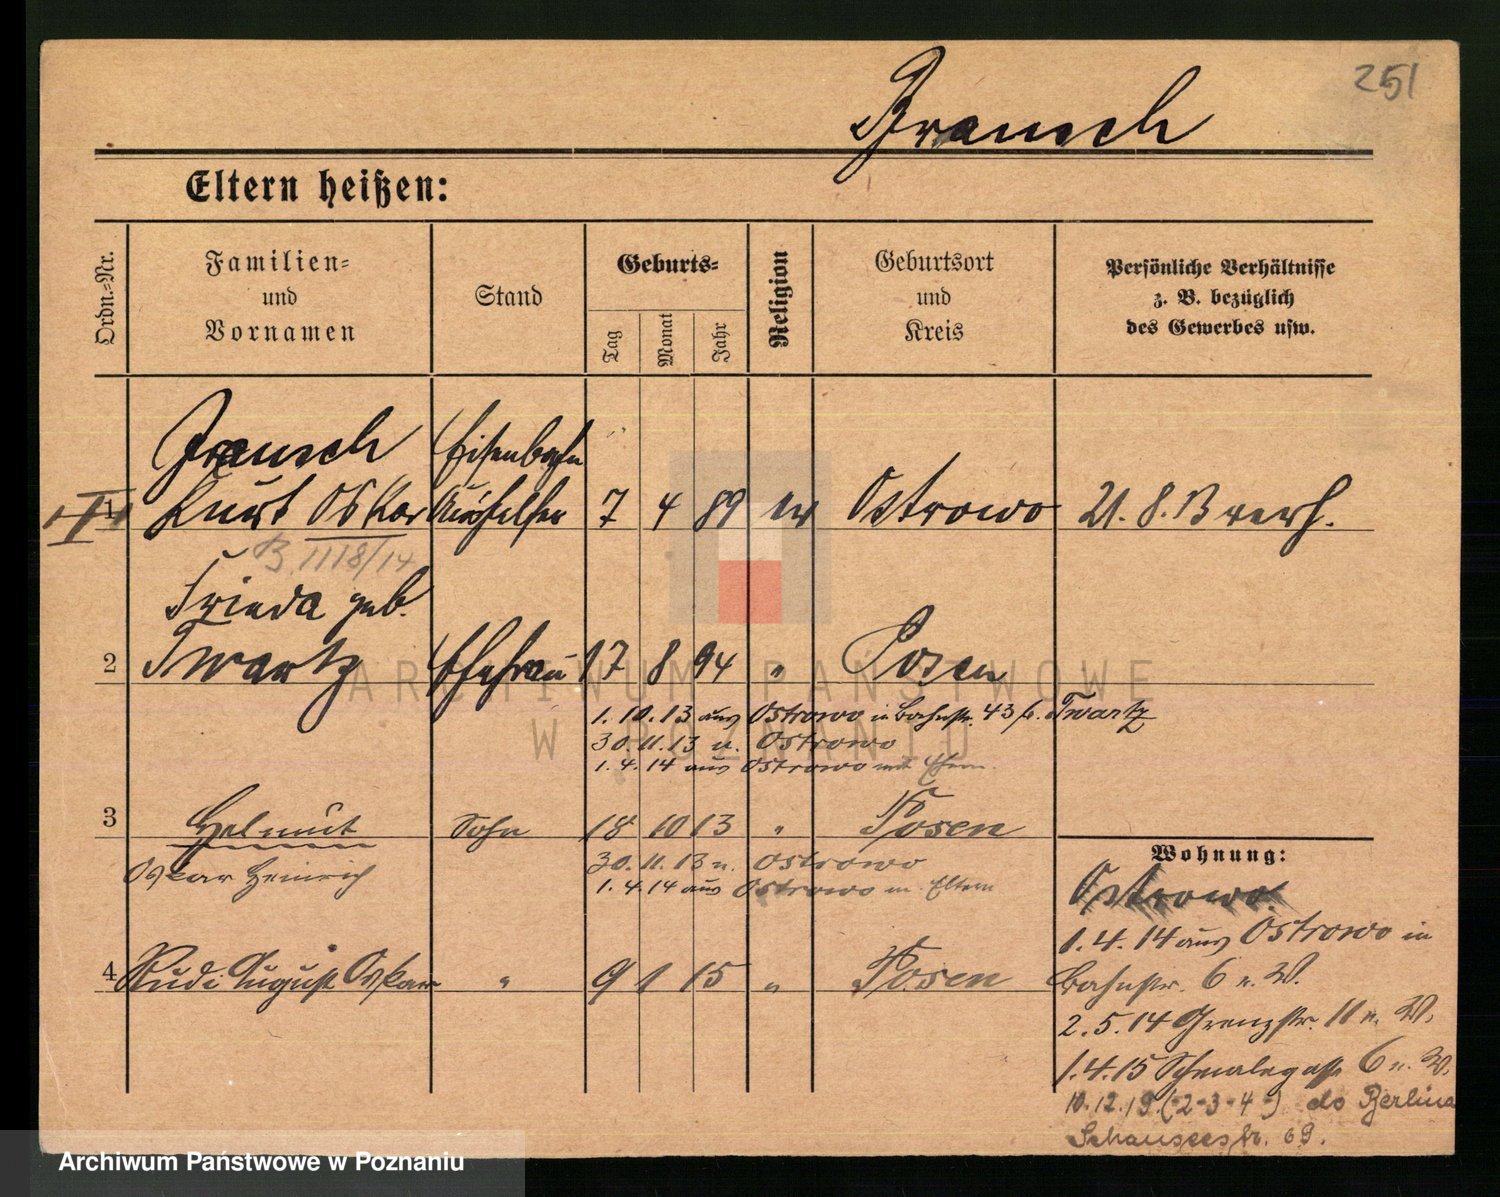 251
Brausch
Eltern heißen:
Ordn.=Nr.
Familien=
und
Vornamen
Stand
Geburts=
Tag
Monat
Jahr
Religion
Geburtsort
und
Kreis
Persönliche Verhältnisse
z. B. bezüglich
des Gewerbes usw.
Brausch Eisenbahn
1 Kurt Oskar Aushelfer 7 4 89 ev Ostrowo 21. 8. 13 verh.
B 1118/14
Frieda geb.
2 Twartz Ehefrau 17 8 94 " Posen
1. 10. 13 aus Ostrowo in Bahnstr. 43 b. Twartz
30. 11. 13 n. Ostrowo
1. 4. 14 aus Ostrowo mit Ehem.
3 Helmut Sohn 18 10 13 " Posen
Oskar Heinrich 30. 11. 13 n. Ostrowo
1. 4. 14 aus Ostrowo m. Eltern
4 Rudi August Oskar " 9 1 15 " Posen
Wohnung:
Ostrowo.
1. 4. 14 aus Ostrowo in
Bahnstr. 6 n. W.
2. 5. 14 Grenzstr. 11 n. W.
1. 4. 15 Schmalegasse 6 n. W.
10. 12. 19. (-2-3-4-) do Berlina
Schausseestr. 69.
ARCHIWUM PAŃSTWOWE
W POZNANIU
Archiwum Państwowe w Poznaniu